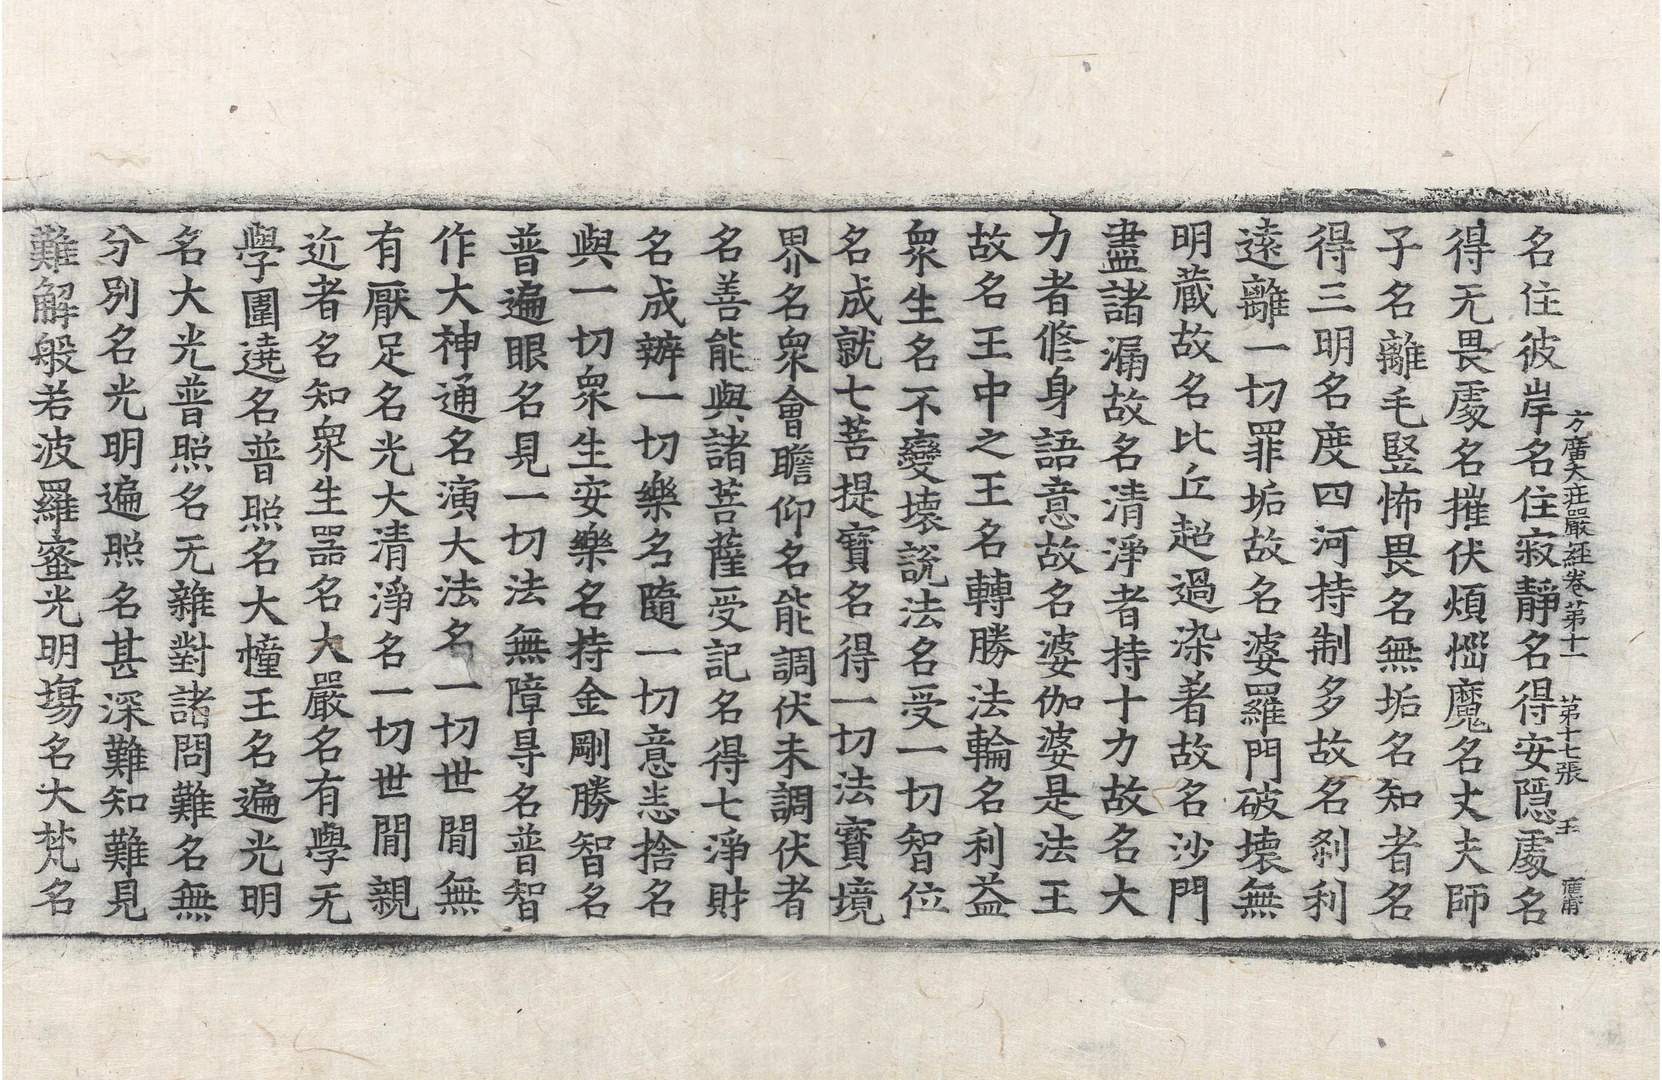 方廣大莊嚴經卷第十一 第十七張 玉 廣甫
名住彼岸名住寂靜名得安隱處名
得无畏處名摧伏煩惱魔名丈夫師
子名離毛竪怖畏名無垢名知者名
得三明名度四河持制多故名刹利
遠離一切罪垢故名婆羅門破壞無
明藏故名比丘超過染著故名沙門
盡諸漏故名清淨者持十力故名大
力者修身語意故名婆伽婆是法王
故名王中之王名轉勝法輪名利益
衆生名不變壞說法名受一切智位
名成就七菩提寶名得一切法寶境
界名衆會瞻仰名能調伏未調伏者
名善能與諸菩薩受記名得七淨財
名成辦一切樂名隨一切意恙捨名
與一切衆生安樂名持金剛勝智名
普遍眼名見一切法無障㝵名普智
作大神通名演大法名一切世閒無
有厭足名光大清淨名一切世閒親
近者名知衆生器名大嚴名有學无
學圍遶名普照名大幢王名遍光明
名大光普照名无雜對諸問難名無
分别名光明遍照名甚深難知難見
難解般若波羅蜜光明塲名大梵名